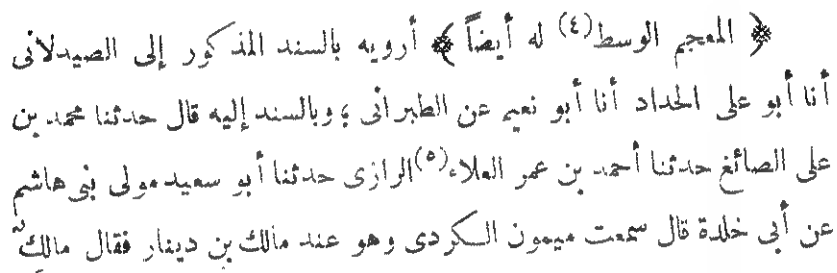 ﴿ المعجم الوسط(٤) له أيضاً ﴾ أرويه بالسند المذكور إلى الصيدلانى
أنا أبو على الحداد أنا أبو نعيم عن الطبرانى ؛ وبالسند إليه قال حدثنا محمد بن
على الصائغ حدثنا أحمد بن عمر العلاء(٥) الرازى حدثنا أبو سعيد مولى بنى هاشم
عن أبى خلدة قال سمعت ميمون الكردى وهو عند مالك بن دينار فقال مالك